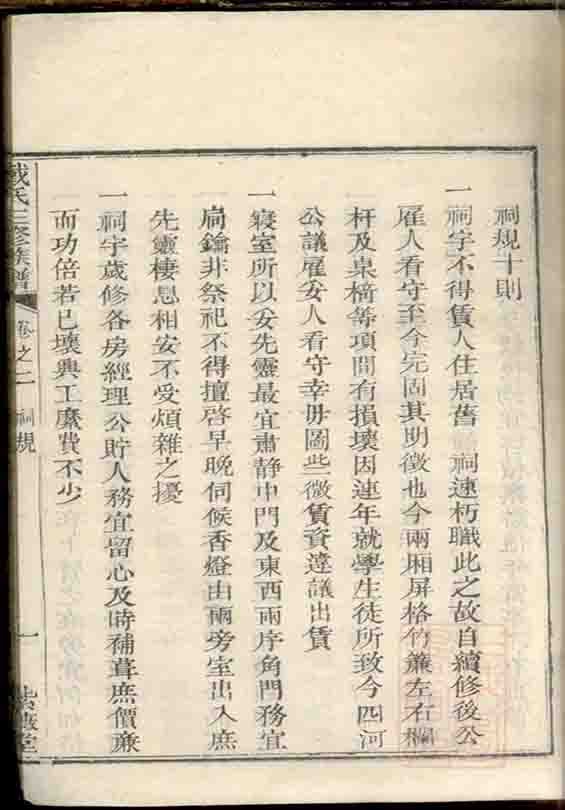 祠規十則
一祠宇不得賃人住居舊祠速朽職此之故自續修後公
雇人看守至今完固其明徵也今兩廂屏格竹簾左右
杆及桌椅等項間有損壞因連年就學生徒所致今四河
公議雇妥人看守幸毋圖些微賃資違議出賃
一寢室所以安先靈最宜肅静中門及東西兩序角門務宜
扃鑰非祭祀不得擅啓早晚伺候香燈由兩旁室出入庶
先靈棲息相安不受煩雜之擾
一祠宇歲修各房經理公貯人務宜留心及時補葺庶價廉
而功倍若已壞興工縻費不少
戴氏三修族譜
卷之二
祠規
一